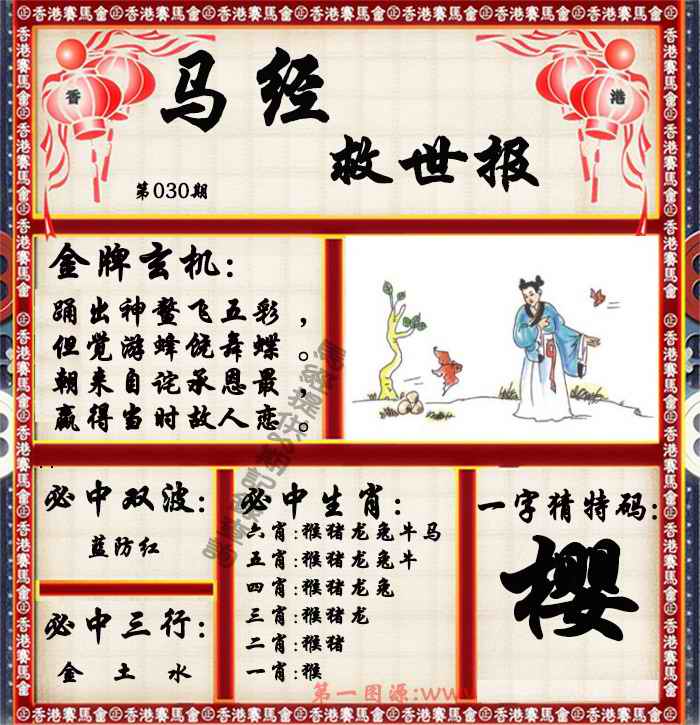 香港賽馬會
香 港
马经
救世报
第030期
金牌玄机:
踊出神鳌飞五彩,
但觉游蜂饶舞蝶。
朝来自诧承恩最,
赢得当时故人恋。
必中双波:
蓝防红
必中三行:
金 土 水
必中生肖:
六肖:猴猪龙兔牛马
五肖:猴猪龙兔牛
四肖:猴猪龙兔
三肖:猴猪龙
二肖:猴猪
一肖:猴
一字猜特码:
樱
第一图源:www